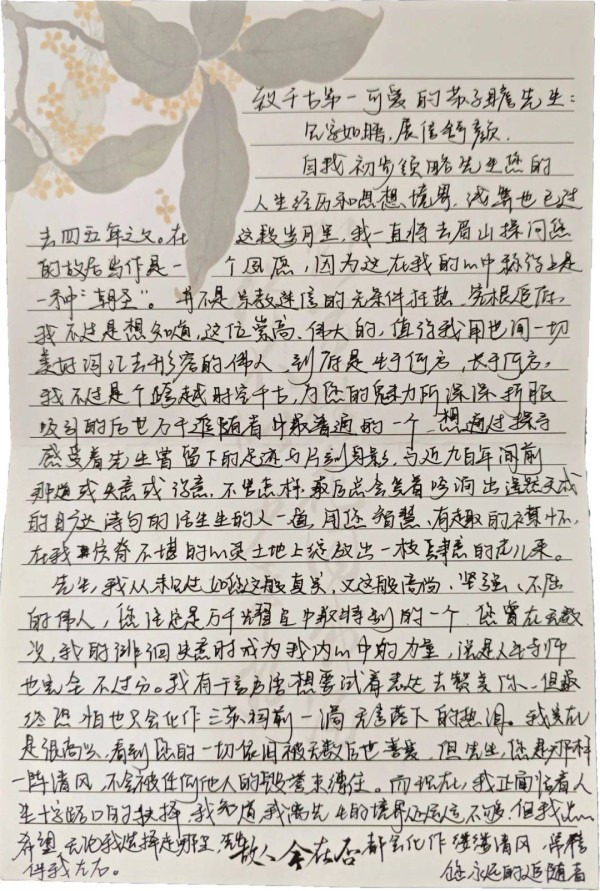 致千古第一可爱的苏子瞻先生:
见字如晤,展信舒颜.
自我初步领略先生您的
人生经历和思想境界,浅算也已过
去四五年之久。在这数岁月里,我一直将去眉山探问您
的故居当作是一个夙愿,因为这在我的心中称得上是
一种“朝圣”。并不是宗教迷信的无条件狂热,究根追底,
我不过是想知道,这位崇高、伟大的,值得我用世间一切
美好词汇去形容的伟人,到底是生于何方,长于何方,
我不过是个跨越时空千古,为您的魅力所深深折服
吸引的后世万千追随者中最普通的一个,想通过探寻
感受着先生曾留下的足迹与片刻身影,与近九百年间前
那道或失意或得意,不管怎样,最后总会笑着吟诵出浑然天成
的自在诗句的活生生的人一道,用您智慧、有趣的襟怀,
在我贫瘠不堪的心灵土地上绽放出一枝肆意的花儿来。
先生,我从未见过如您这般真实,又这般高尚、坚强、不屈
的伟人,您注定是万千耀星中最特别的一个,您曾在无数
次,我的徘徊失意时成为我内心中的力量,说是人生导师
也完全不过分。我有千言万语想要试着表达去赞美你,但最
终恐怕也只会化作三苏祠前一滴无声落下的热泪。我实在
是很高兴,看到您的一切依旧被无数后世喜爱,但先生,您是那样
一阵清风,不会被任何他人的毁誉束缚住。而现在,我正面临着人
生十字路口的抉择,我知道,我离先生的境界还远远不够,但我
希望,无论我选择走哪里,故人今在否都会化作缕缕清风,
伴我左右。
您永远的追随者